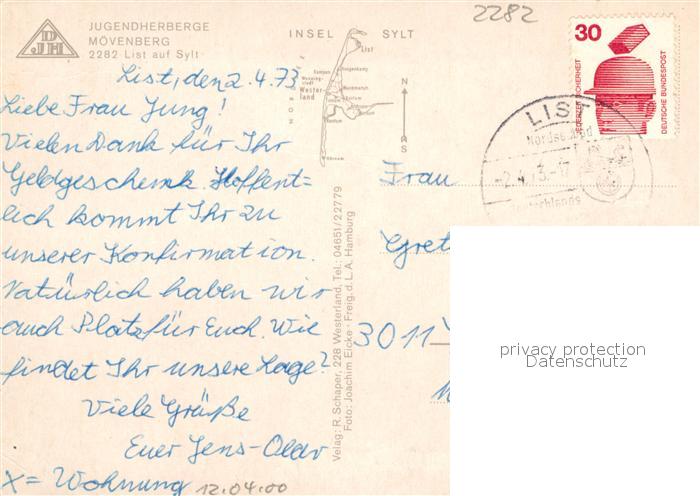 JUGENDHERBERGE
MÖVENBERG
2282 List auf Sylt
List, den 2.4.73
Liebe Frau Jung!
Vielen Dank für Ihr
Geldgeschenk. Hoffent-
lich kommt Ihr zu
unserer Konfirmation.
Natürlich haben wir
auch Platz für Euch. Wie
findet Ihr unsere Lage?
Viele Grüße
Euer Jens-Olav
X = Wohnung
12.04.00
INSEL SYLT
List
Kampen
Wester-
land
Verlag: R. Schaper, 228 Westerland, Tel.: 04651/22779
Foto: Joachim Eicke · Freig. d. L.A. Hamburg
2282
30
JEDERZEIT SICHERHEIT
DEUTSCHE BUNDESPOST
LIST
Nordseebad
-2.4.73-17
Frau
Gret
3011
privacy protection
Datenschutz